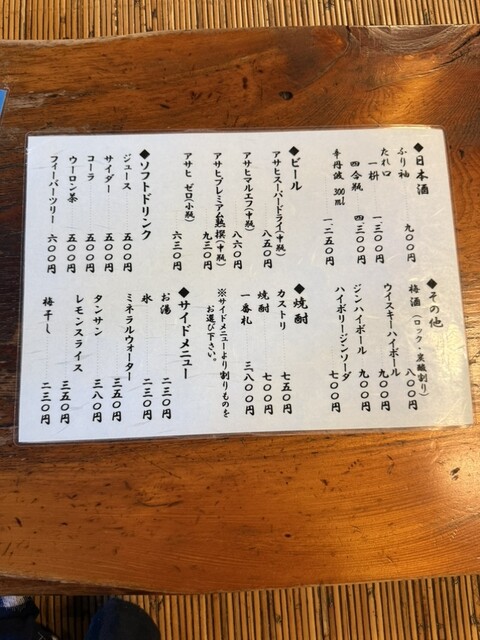 ◆日本酒
ふり袖 九〇〇円
たれ口
一枡 一三〇〇円
四合瓶 四三〇〇円
辛丹波 300ml 一二五〇円
◆ビール
アサヒスーパードライ(中瓶) 八五〇円
アサヒマルエフ(中瓶) 八六〇円
アサヒプレミアム熟撰(中瓶) 九三〇円
アサヒ ゼロ(小瓶) 六三〇円
◆ソフトドリンク
ジュース 五〇〇円
サイダー 五〇〇円
コーラ 五〇〇円
ウーロン茶 五〇〇円
フィーバーツリー 六〇〇円
◆その他
梅酒(ロック・炭酸割り) 八〇〇円
ウイスキーハイボール 九〇〇円
ジンハイボール 九〇〇円
ハイボリージンソーダ 七〇〇円
◆焼酎
カストリ 七五〇円
焼酎 七〇〇円
一番札 三八〇〇円
※サイドメニューより割りものを
お選び下さい。
◆サイドメニュー
お湯 二三〇円
氷 二三〇円
ミネラルウォーター 三五〇円
タンサン 三八〇円
レモンスライス 三五〇円
梅干し 二三〇円